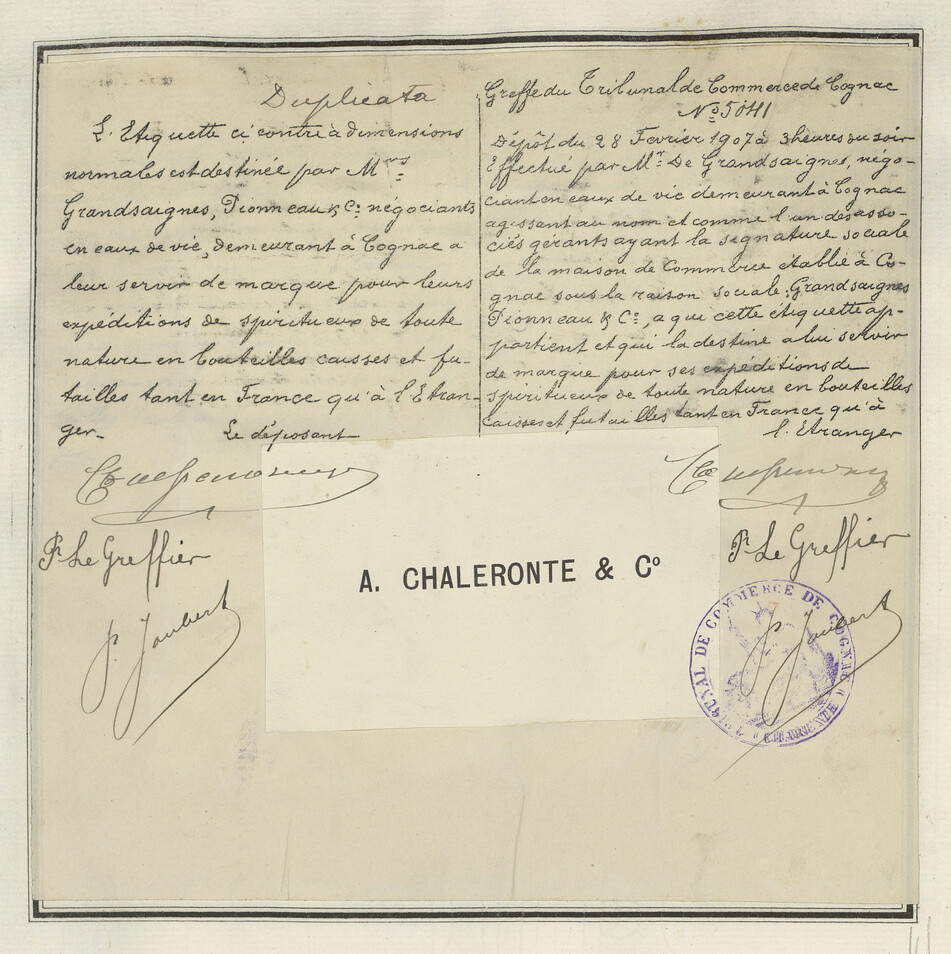 Duplicata
L'Etiquette ci contre à dimensions
normales est destinée par Mrs
Grandsaignes, Pionneau & Co négociants
en eaux de vie, demeurant à Cognac a
leur servir de marque pour leurs
expéditions de spiritueux de toute
nature en bouteilles caisses et fu-
tailles tant en France qu'à l'Etran-
ger.
Le déposant
Pr Le Greffier
P. Joubert
Greffe du Tribunal de Commerce de Cognac
No 5041
Dépôt du 28 Fevrier 1907 à 3 heures du soir
Effectué par Mr De Grandsaignes, négo-
ciant en eaux de vie demeurant à Cognac
agissant au nom et comme l'un des asso-
ciés gérants ayant la signature sociale
de la maison de Commerce établie à Co-
gnac sous la raison sociale: Grandsaignes
Pionneau & Co, a qui cette étiquette ap-
partient et qui la destine a lui servir
de marque pour ses expéditions de
spiritueux de toute nature en bouteilles
caisses et futailles tant en France qu'à
l'Etranger
Pr Le Greffier
P. Joubert
A. CHALERONTE & Co
TRIBUNAL DE COMMERCE DE COGNAC